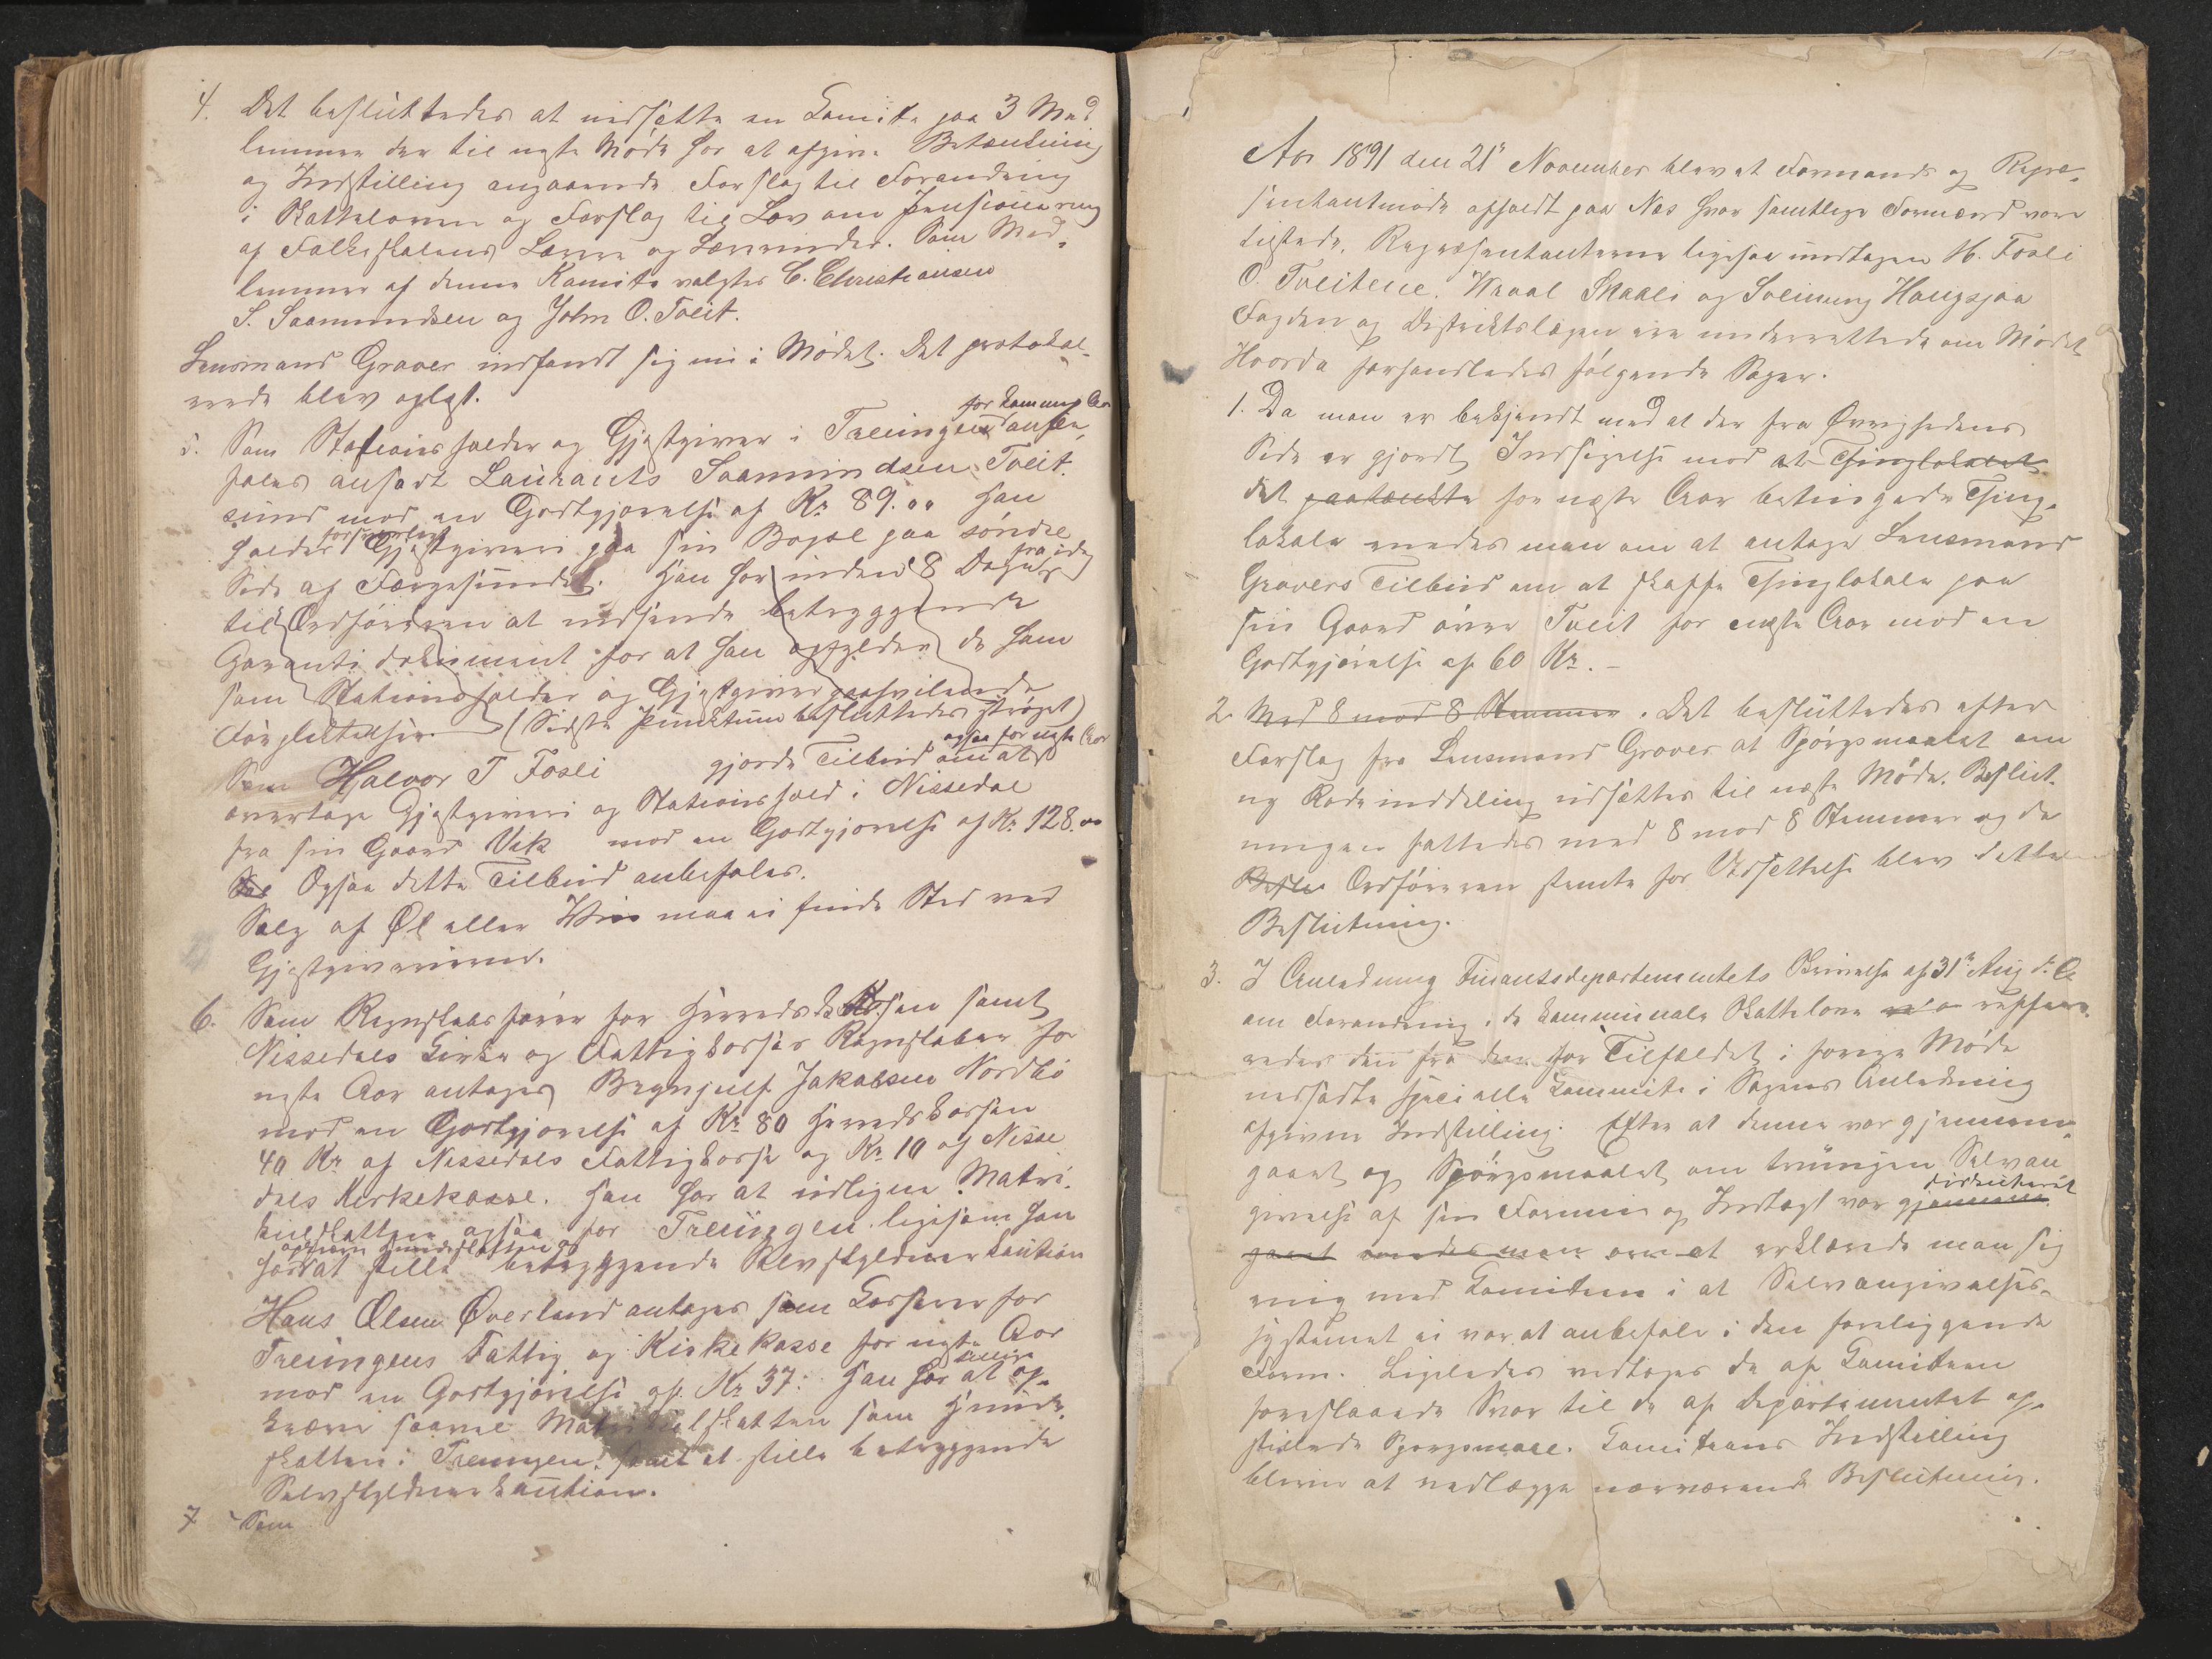 4. Det besluttedes at nedsætte en Comite paa 3 Med
lemmer der til næste Møde har at afgive Betænkning
og Indstilling angaaende Forslag til Forandring
i Skatteloven og Forslag til Lov om Pensionering
af Folkeskolens Lærere og Lærerinder. Som Med-
lemmer af denne Komite valgtes C. Christiansen
S. Saamundsen og John O. Tveit.
Lensmand Graver indfandt sig nu i Mødet. Det protokol-
erede blev oplæst.
5. Som Stationsholder og Gjæstgiver i Treungen for kommende Aar anbe-
fales ansat Laurants Saamundsen Tveit-
sund mod en Godtgjørelse af Kr 89.00 Han
holder forsvarligt Gjæstgiveri paa sin Bopæl paa søndre
Side af Færgesundet. Han har inden 8 Dage fra idag
til Ordføreren at indsende betryggende
Garanti dokument for at han opfylder de ham
som Stationsholder og Gjæstgiver paahvilende
Forpligtelser. (Sidste Punktum besluttedes strøget)
Som Halvor T Fosli gjorde Tilbud om at ogsaa for næste Aar
overtage Gjæstgiveri og Stationshold i Nissedal
fra sin Gaard Vik mod en Godtgjørelse af Kr 128.00
Ogsaa dette Tilbud anbefales.
Salg af Øl eller Vin maa ei finde Sted ved
Gjæstgiverierne.
6. Som Regnskabsfører for Herredskassen samt
Nissedals Kirke og Fattigkasses Regnskaber for
næste Aar antages Brynjulf Jakobsen Nordbø
mod en Godtgjørelse af Kr 80 Herredskassen
40 Kr af Nissedals Fattigkasse og Kr 10 af Nisse
dals Kirkekasse. Han har at udligne Matri-
kulskatten ogsaa for Treungen ligesom han
opkræve Hundeskatten og
har at stille betryggende Selvskyldnerkaution
Hans Olsen Øverland antages som Kasserer for
Treungens Fattig og Kirkekasse for næste Aar
mod en Godtgjørelse af Kr 37: Han har at op-
kræve saavel Matrikulskatten som Hunde-
skatten i Treungen samt at stille betryggende
Selvskyldnerkaution.
7 Som
Aar 1891 den 21de November blev et Formands og Repræ-
sentantmøde afholdt paa Næs hvor samtlige Formænd vare
tilstede. Repræsentanterne ligesaa undtagen H. Fosli
O. Tveitene. Wraal Skaali og Sveinung Haugsjaa
Fogden og Distriktslægen ere underrettede om Mødet
Hvorda forhandledes følgende Sager.
1. Da man er bekjendt med at der fra Øvrighedens
Side er gjordt Indsigelse mod at Thinglokalet
det paatænkte for næste Aar betingede Thing-
lokale enedes man om at antage Lensmand
Gravers Tilbud om at skaffe Thinglokale paa
sin Gaard øvre Tveit for næste Aar mod en
Godtgjørelse af 60 Kr. -
2. Med 8 mod 8 Stemmer. Det besluttedes efter
Forslag fra Lensmand Graver at Spørgsmaalet om
ny Rodeinddeling udsættes til næste Møde. Beslut-
ningen fattedes med 8 mod 8 Stemmer og da
Beslu Ordføreren stemte for Udsettelse blev dette
Beslutning.
3. I Anledning Finantsdepartementets Skrivelse af 31te Aug d. A
om Forandring i de kommunale Skattelove refere-
redes den fra den for Tilfældet i forrige Møde
nedsatte specielle Kommite i Sagens Anledning
afgivne Indstilling. Efter at denne var gjennem-
gaaet og Spørgsmaalet om tvungen Selvan
givelse af sin Formue og Indtægt var gjennem diskuteret
gaaet enedes man om at erklærede man sig
enig med Komiteen i at Selvangivelses-
systemet ei var at anbefale i den foreliggende
Form. Ligeledes vedtoges de af Komiteen
foreslaaede Svar til de af Departementet op-
stillede Spørgsmaal. Komiteens Indstilling
bliver at vedlægge nærværende Beslutning.